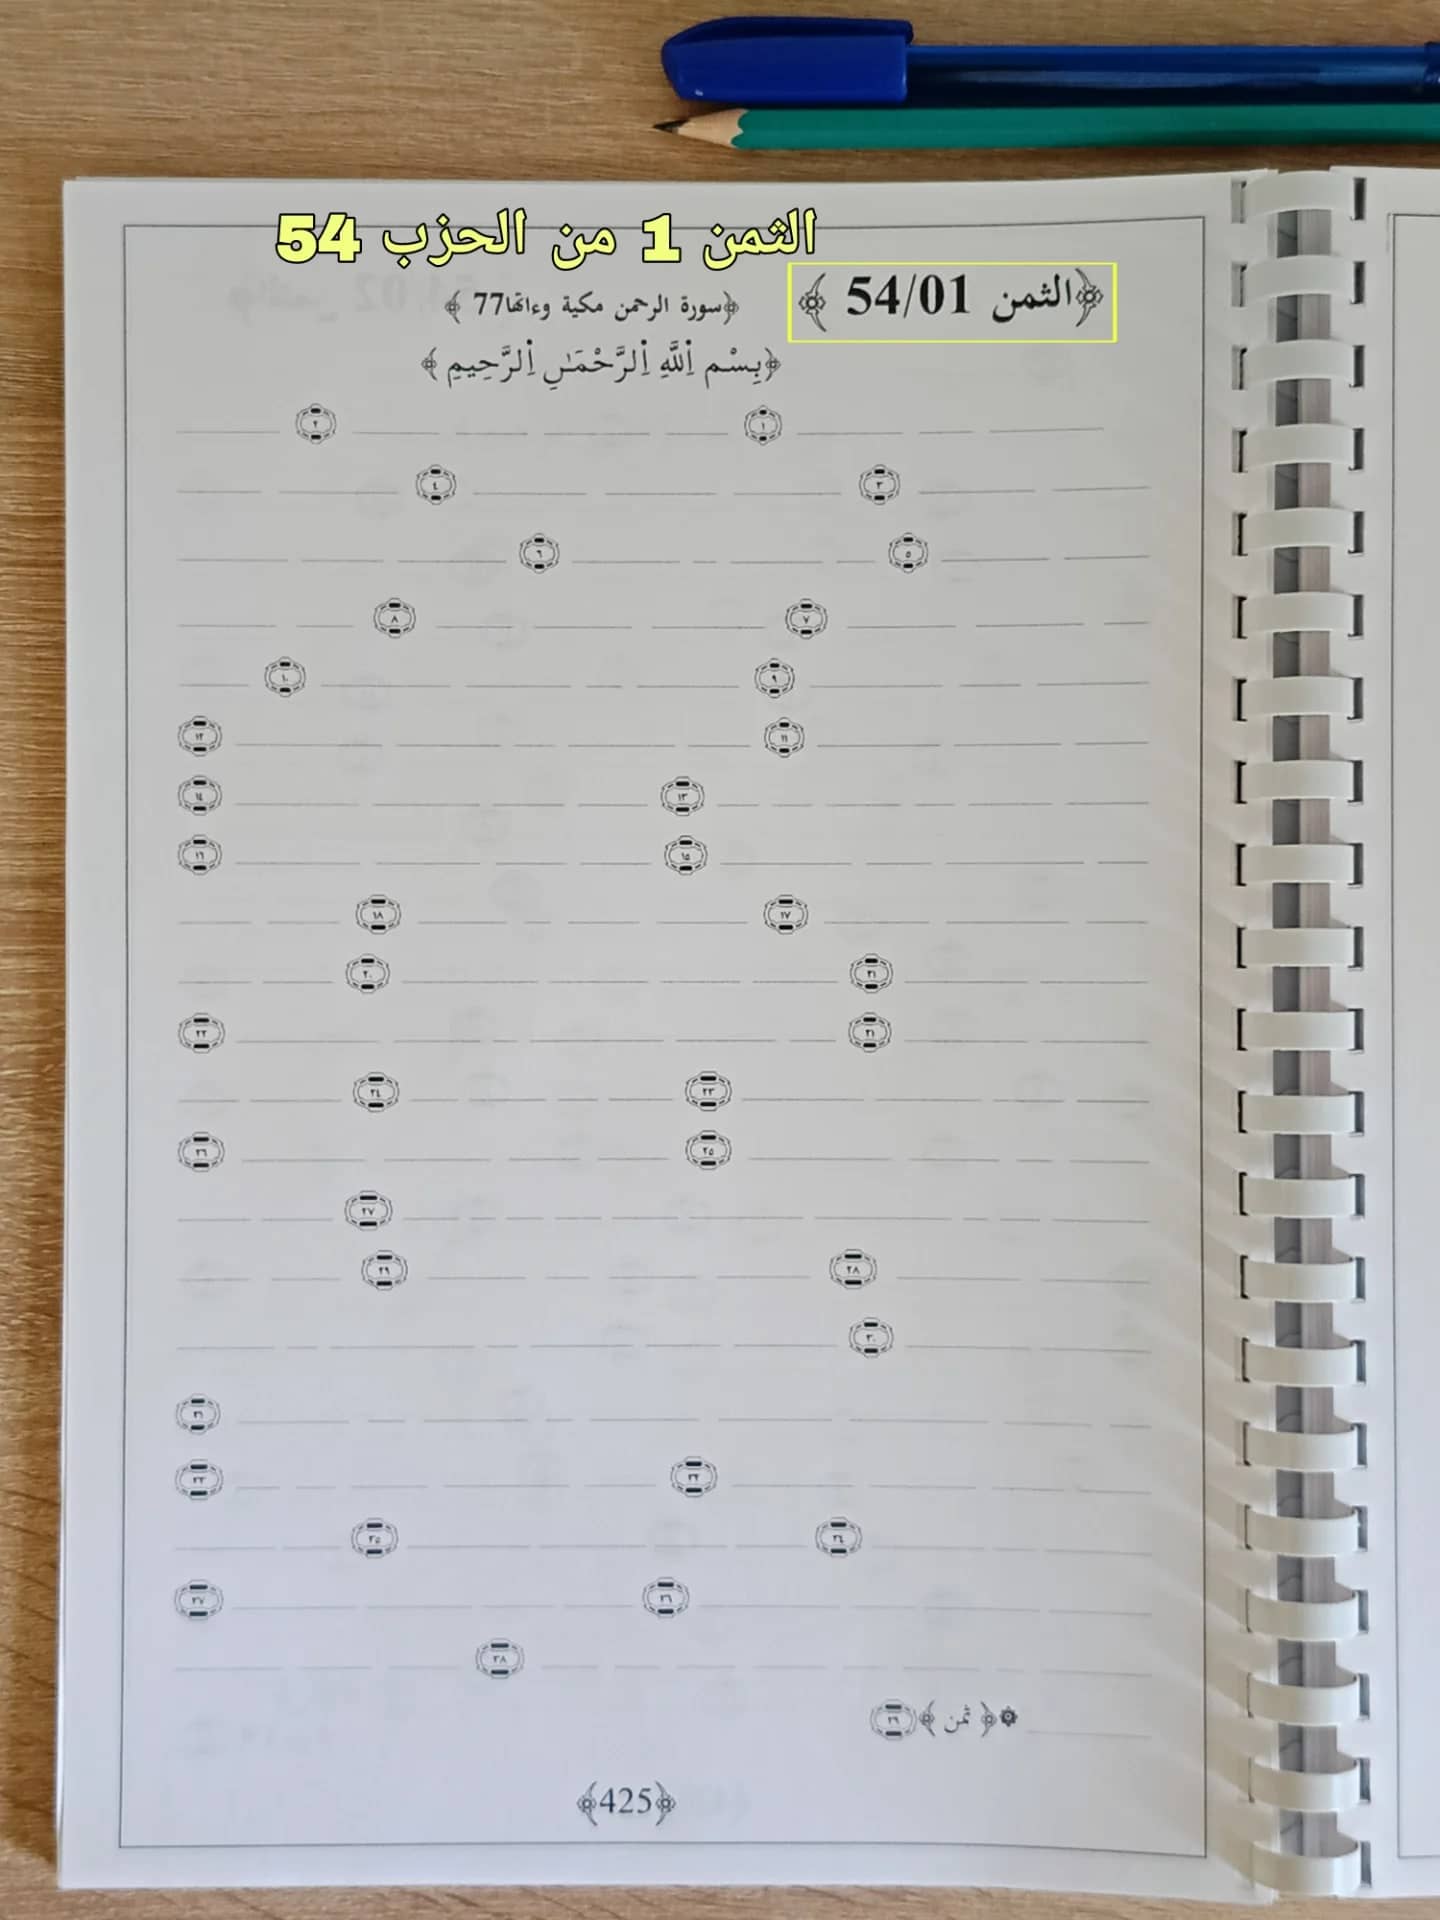 الثمن 1 من الحزب 54
﴿الثمن 54/01﴾
﴿سورة الرحمن مكية وءاتها77﴾
﴿بِسْمِ اِ۬للَّهِ اِ۬لرَّحْمَٰنِ اِ۬لرَّحِيمِ﴾
١ ٢
٣ ٤
٥ ٦
٧ ٨
٩ ١٠
١١ ١٢
١٣ ١٤
١٥ ١٦
١٧ ١٨
٢٠
٢١ ٢٢
٢٣ ٢٤
٢٥ ٢٦
٢٧
٢٨ ٢٩
٣٠
٣١
٣٢ ٣٣
٣٤ ٣٥
٣٦ ٣٧
٣٨
۞﴿ ثمن ﴾
﴿425﴾